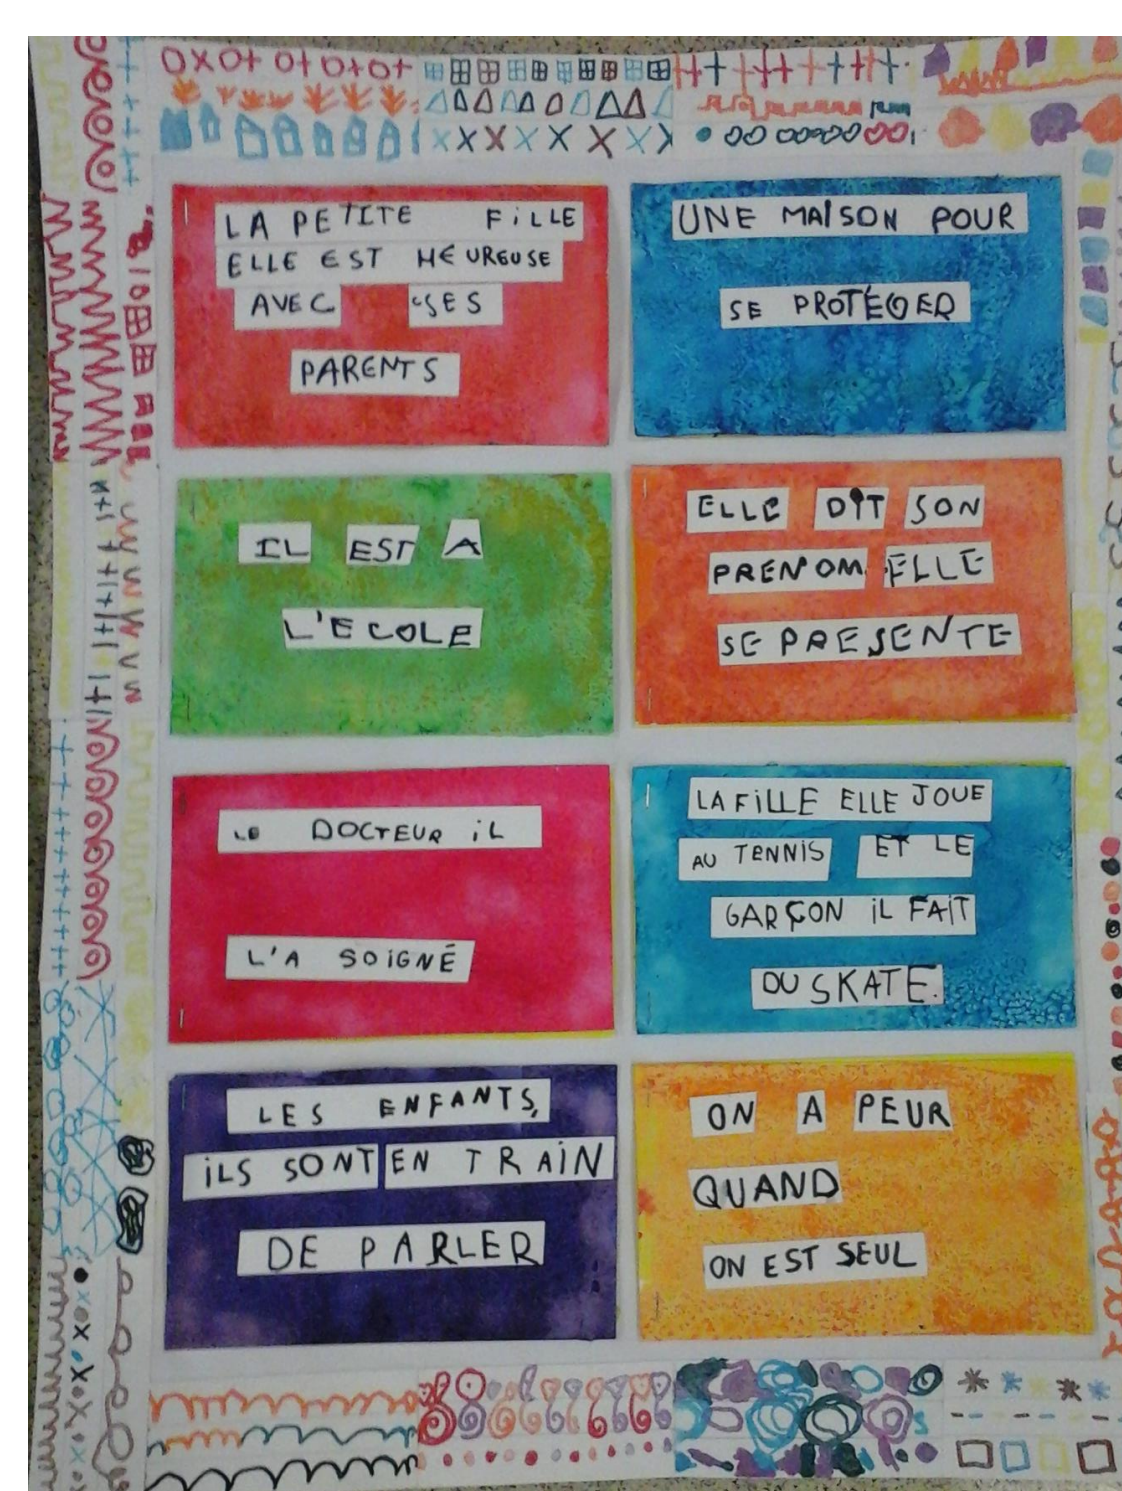 LA PETITE FiLLE
ELLE EST HEUREUSE
AVEC SES
PARENTS
UNE MAISON POUR
SE PROTÉGER
IL EST A
L'ECOLE
ELLE DIT SON
PRENOM ELLE
SE PRESENTE
LE DOCTEUR iL
L'A SOiGNÉ
LA FiLLE ELLE JOUE
AU TENNiS ET LE
GARÇON iL FAIT
DU SKATE.
LES ENFANTS,
iLS SONT EN TRAIN
DE PARLER
ON A PEUR
QUAND
ON EST SEUL